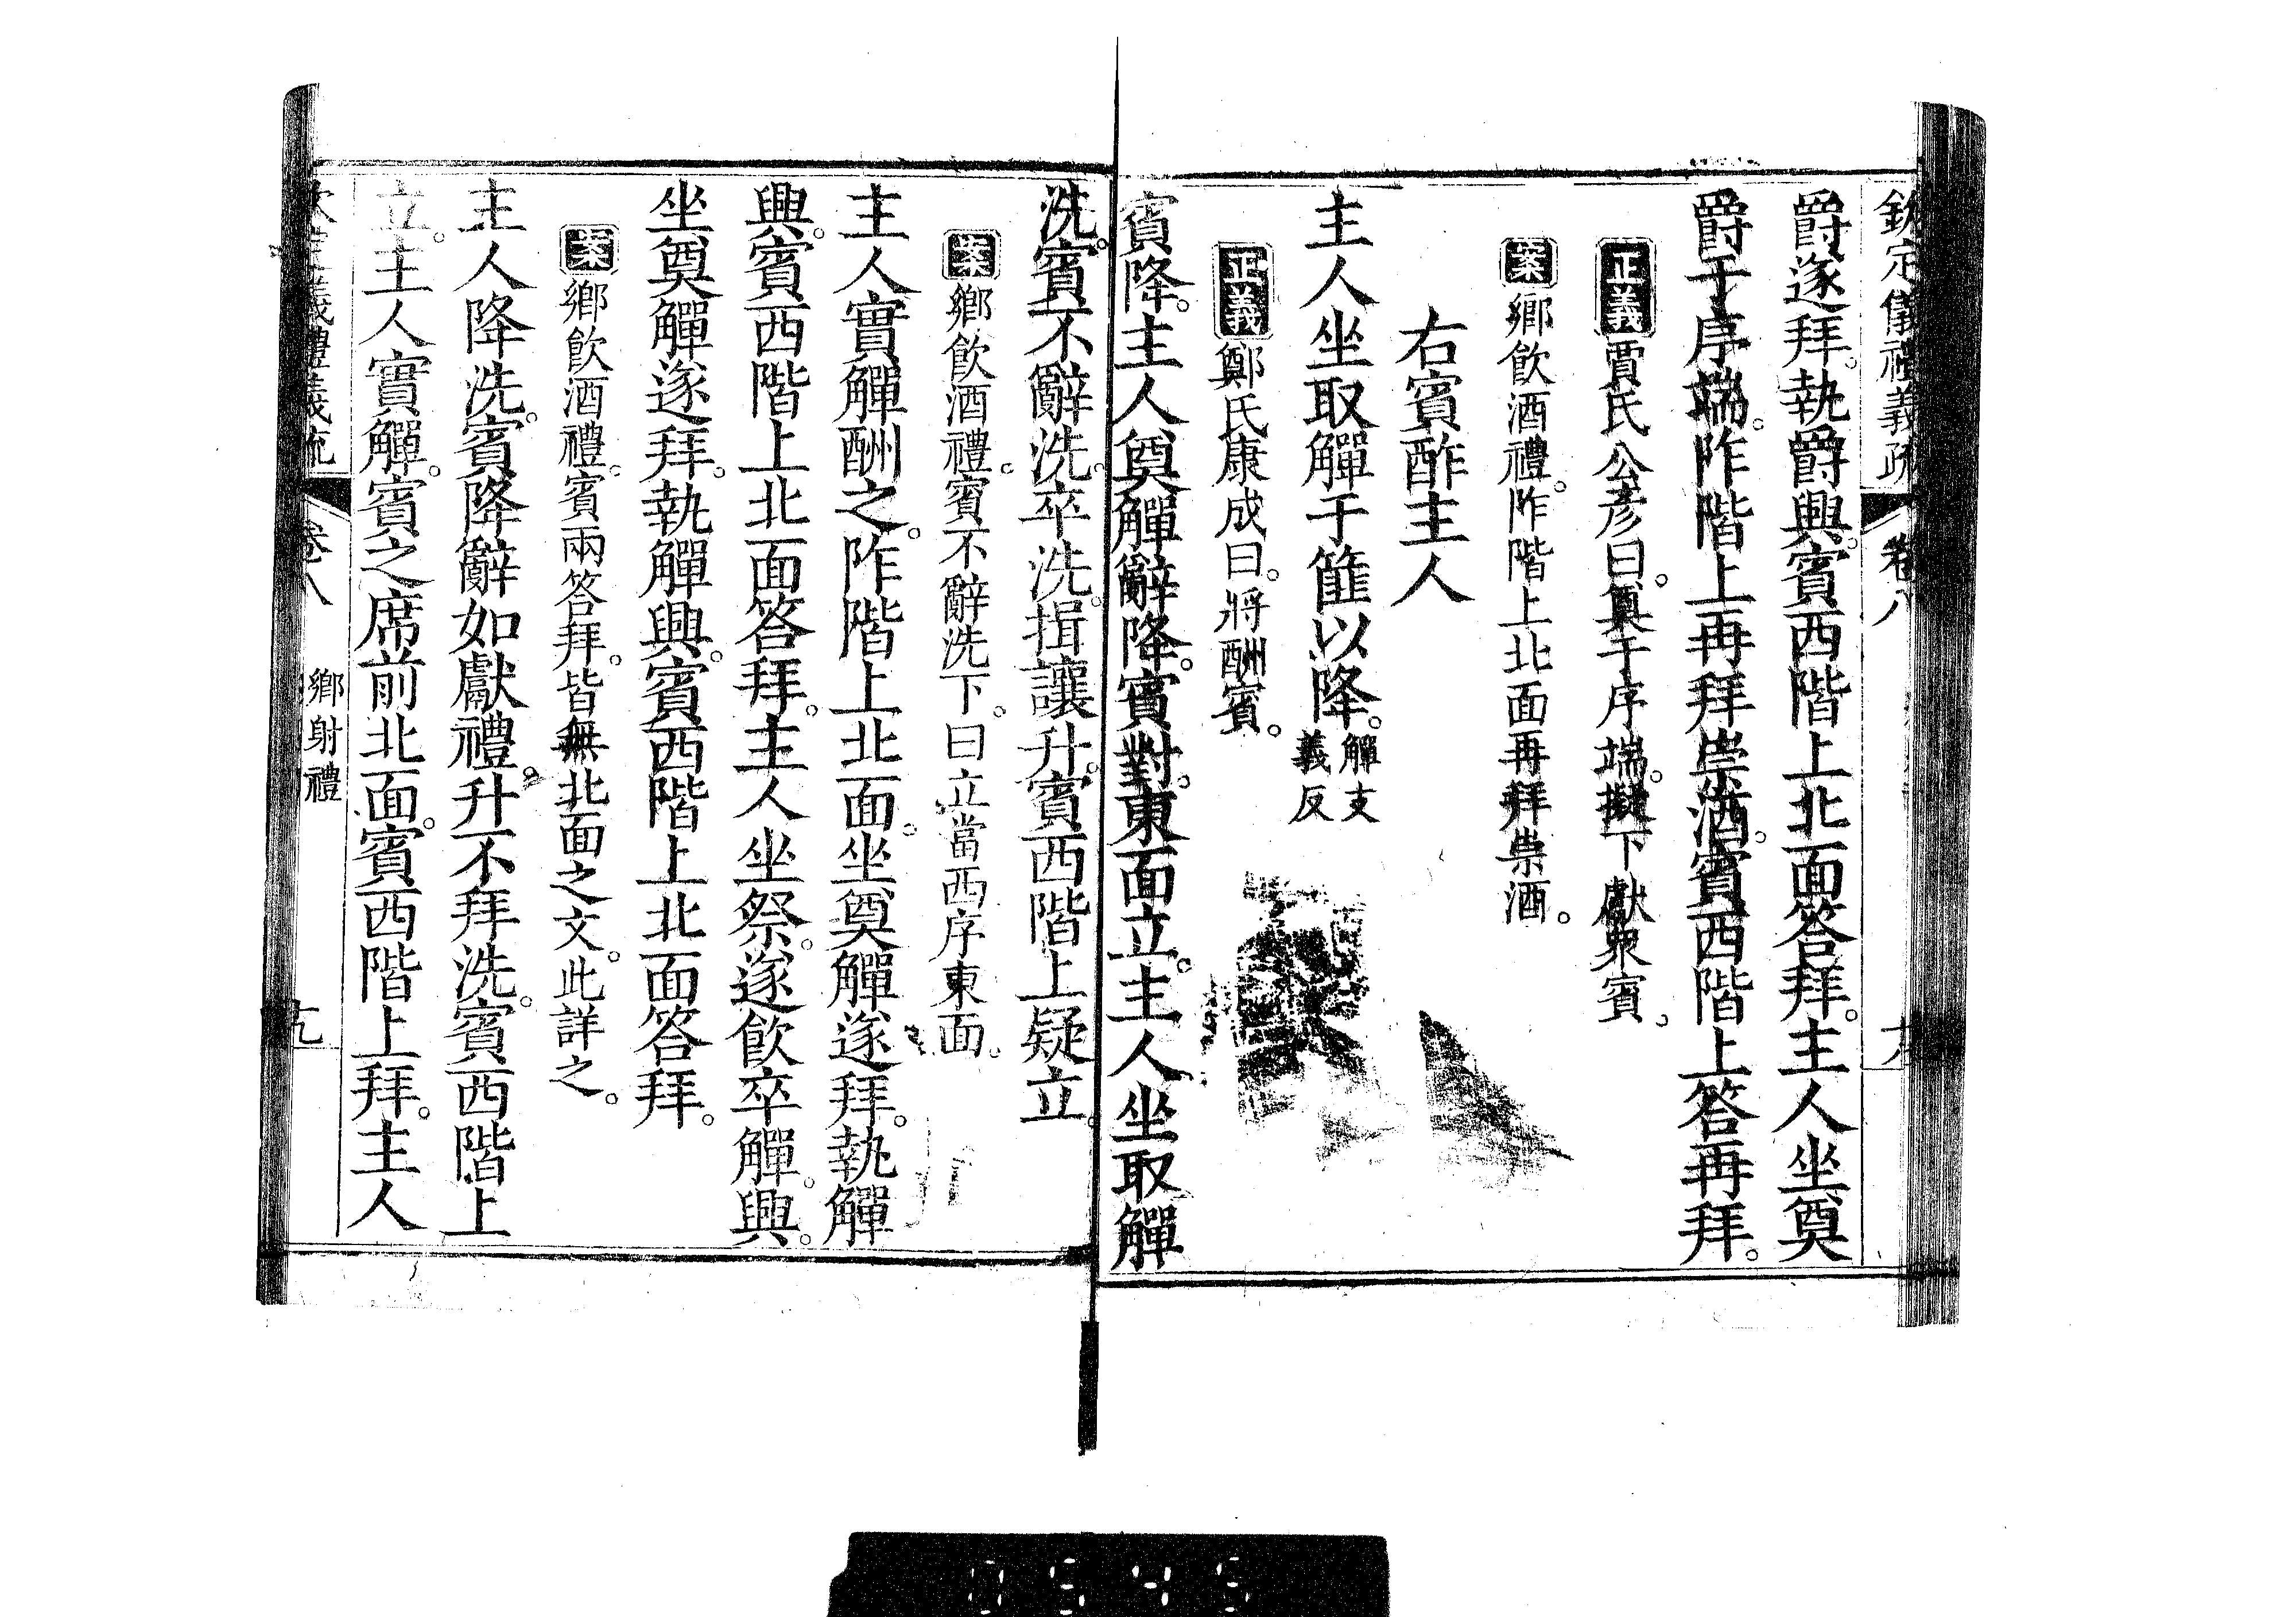 欽定儀禮義疏 卷八
爵遂拜。執爵興。賓西階上北面答拜。主人坐奠
爵于序端。阼階上再拜崇酒。賓西階上答再拜。
正義賈氏公彥曰。奠于序端。擬下獻衆賓。
案鄉飲酒禮。阼階上北面再拜崇酒。
右賓酢主人
主人坐取觶于篚以降。觶支義反
正義鄭氏康成曰。將酬賓。
賓降。主人奠觶辭降。賓對。東面立。主人坐取觶
洗。賓不辭洗。卒洗。揖讓升。賓西階上疑立。
案鄉飲酒禮。賓不辭洗下。曰立當西序東面。
主人實觶酬之。阼階上北面。坐奠觶遂拜。執觶
興。賓西階上北面答拜。主人坐祭。遂飲卒觶。興。
坐奠觶遂拜。執觶興。賓西階上北面答拜。
案鄉飲酒禮。賓兩答拜。皆無北面之文。此詳之。
主人降洗。賓降辭如獻禮。升不拜洗。賓西階上
立。主人實觶。賓之席前北面。賓西階上拜。主人
定儀禮義疏 卷八 鄉射禮